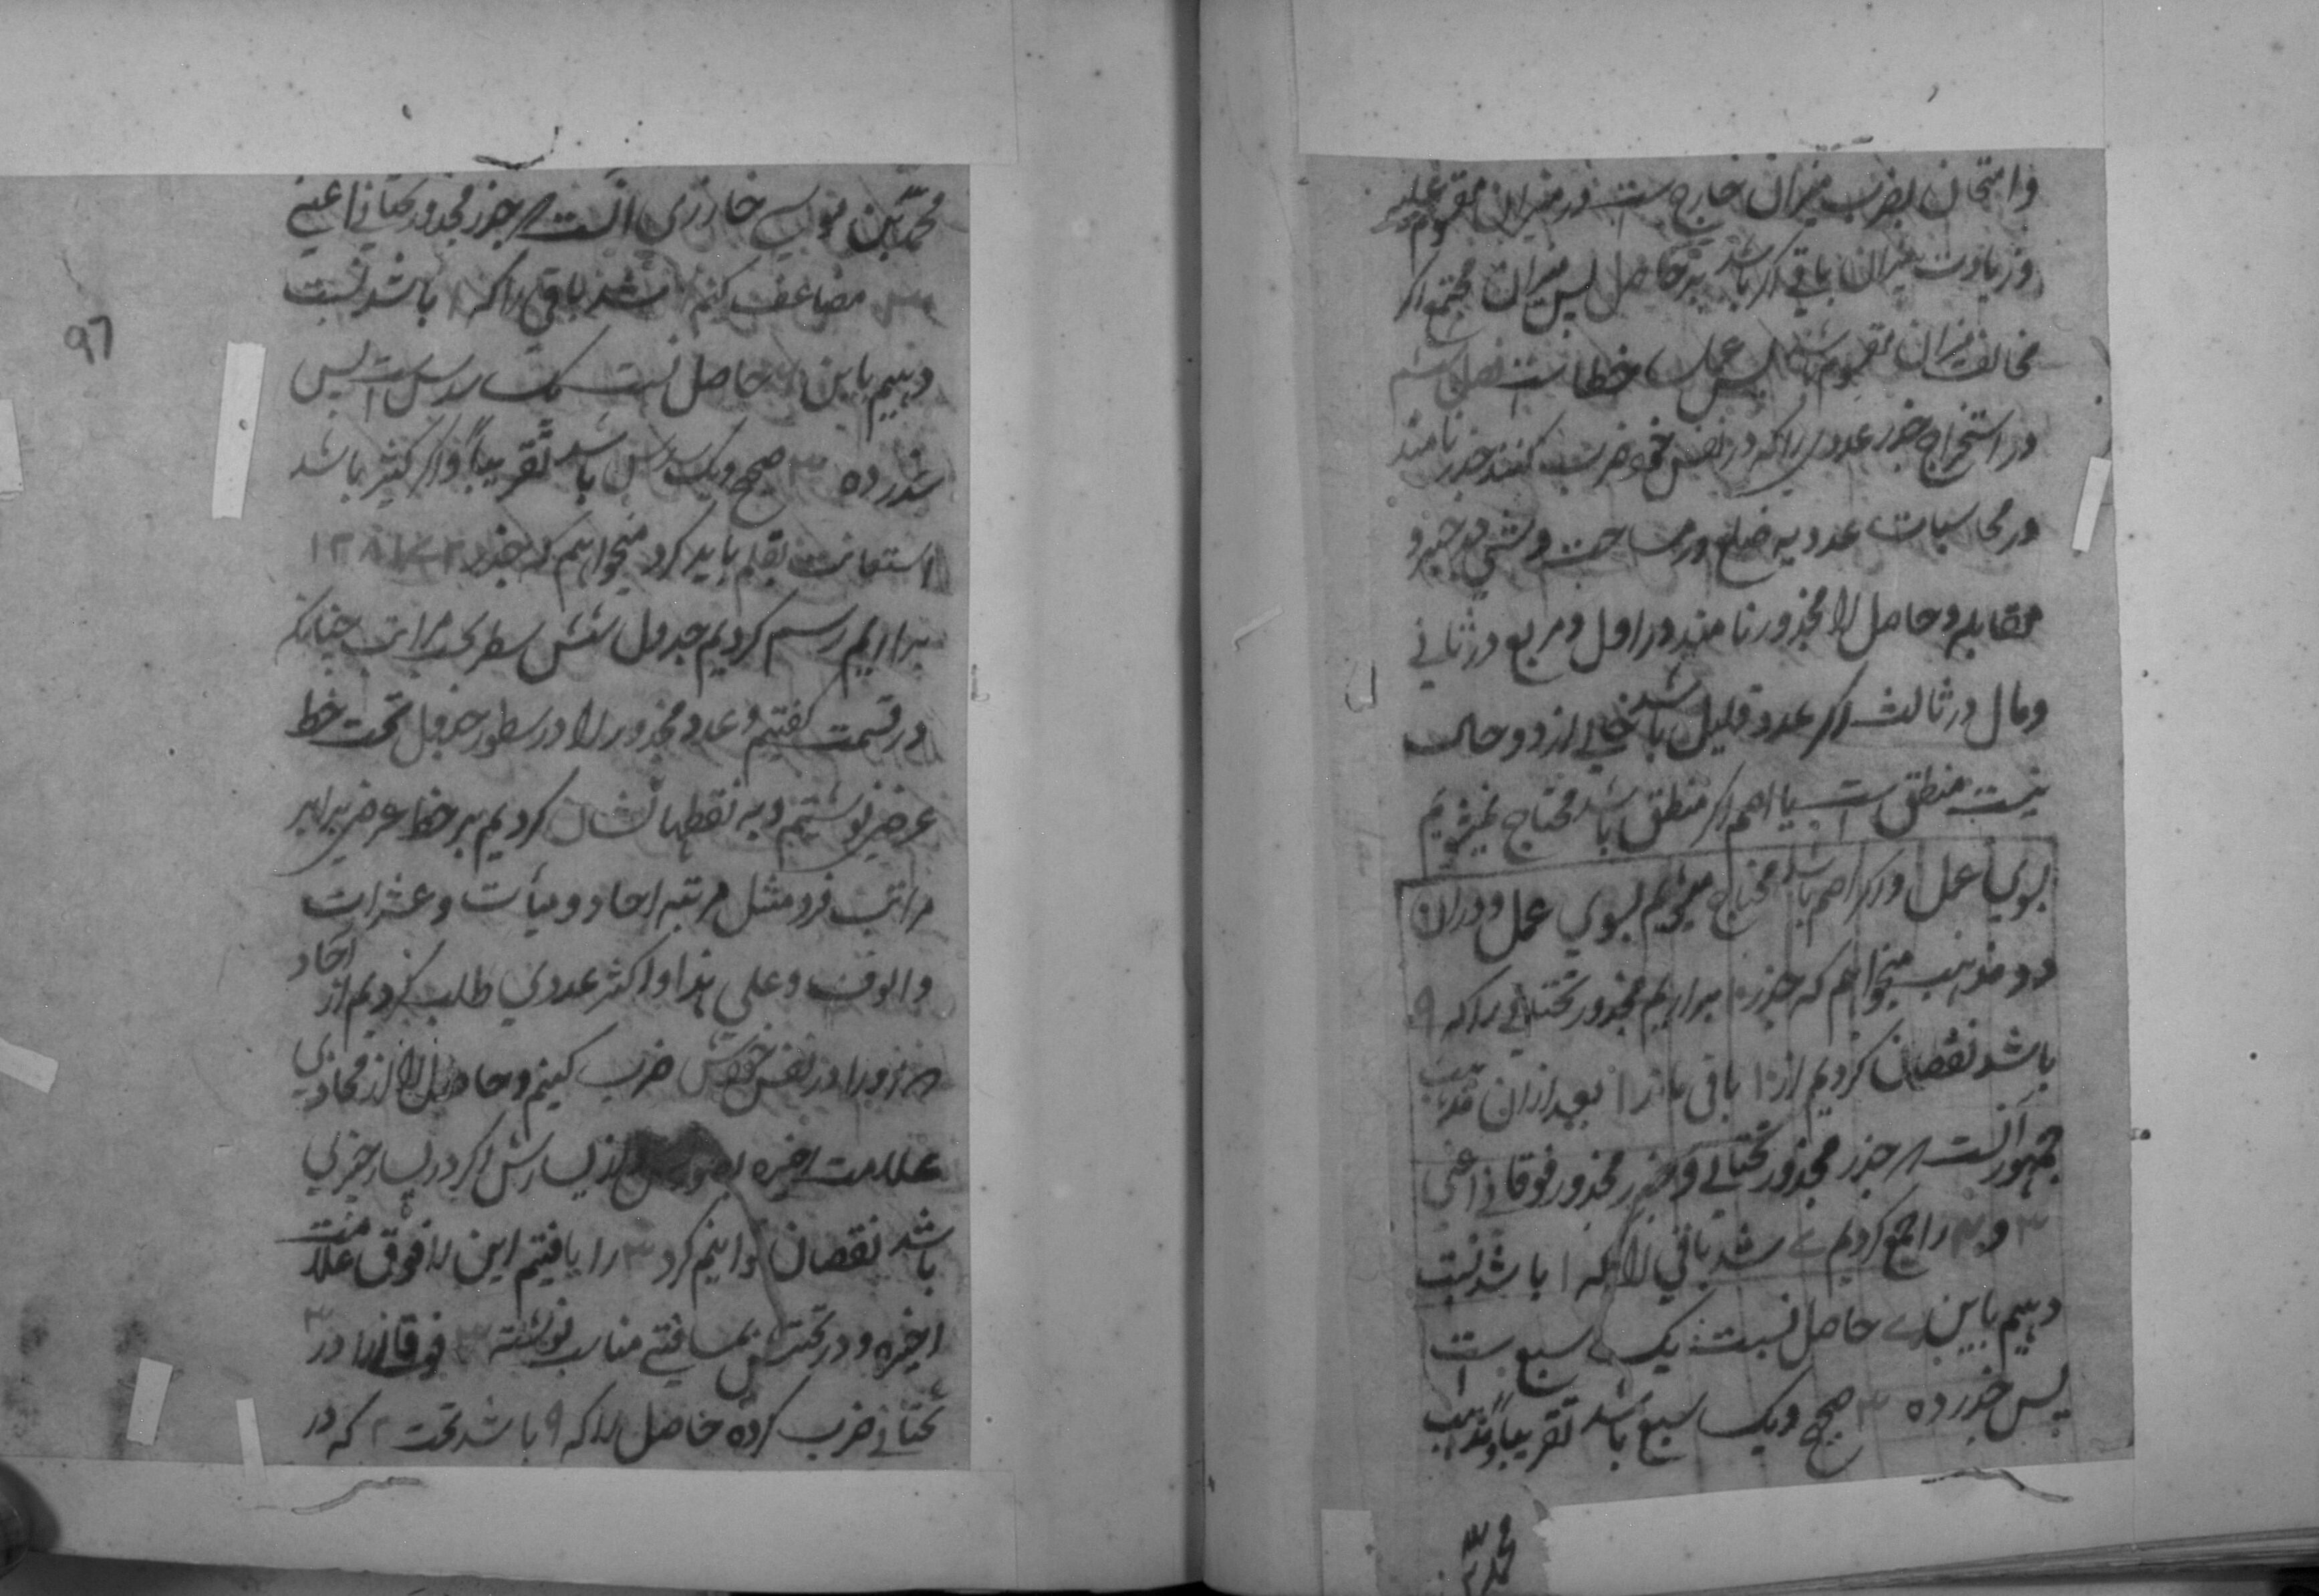 وامتحان بضرب میزان خارج ست در میزان مقسوم علیه
وزیادت میزان باقی اگر باشد بر حاصل پس میزان مجتمع اگر
مخالف میزان مقسوم باشد پس عمل خطا ست فصل ششم
در استخراج جذر عددی را که در نفس خود ضرب کنند جذر نامند
در محاسبات عددیه ضلع در مساحت و شی در جبر و
مقابله و حاصل را مجذور نامند در اول و مربع در ثانی
ومال در ثالث اگر عدد قلیل باشد خالی از دو حال
نیست منطق ست یا اصم اگر منطق باشد محتاج نمیشویم
بسوی عمل و اگر اصم باشد محتاج میشویم بسوی عمل و دران
دو مذهب میخواهم که جذر ۱۰ براریم مجذور تحتانی را که ۹
باشد نقصان کردیم از ۱۰ باقی ماند ۱ بعد ازان مذهب
جمهور انست که جذر مجذور تحتانی و جذر مجذور فوقانی اعنی
۳ و ۴ را جمع کردیم ۷ شد باقی را که ۱ باشد نسبت
دهیم باین ۷ حاصل نسبت یک سبع ست
پس جذر ده ۳ صحیح و یک سبع باشد تقریبا و مذهب
محمد بن
۹۷
محمد بن موسی خارزی انست که جذر مجذور تحتانی اعنی
مضاعف کنم شد باقی را که ۱ باشد نسبت
دهیم باین ۶ حاصل نسبت یک سدس ست پس
جذر ده ۳ صحیح و یک سدس باشد تقریبا و اگر کثیر باشد
استعانت بقلم باید کرد میخواهم که جذر ۱۲۸۱۷۲
براریم رسم کردیم جدول شش سطر بعد مراتب چنانکه
در قسمت گفتیم و عدد مجذور را در سطور جدول تحت خط
عرضی نوشتیم و به نقطها نشان کردیم بر خط عرضی برابر
مراتب فرد مثل مرتبه احاد و میأت و عشرات
والوف و علی هذا و اکثر عددی طلب کردیم از احاد
که او را در نفس خویش ضرب کنیم و حاصل را از محاذی
علامت اخیره و از یسارش اگر در یسار چیزی
باشد نقصان توانیم کرد ۳ را یافتیم این را فوق علامت
اخیره و در تحتش بمسافتی مناسب نوشته ۳ فوقانی را در ۳
تحتانی ضرب کرده حاصل را که ۹ باشد تحت ۲ که در